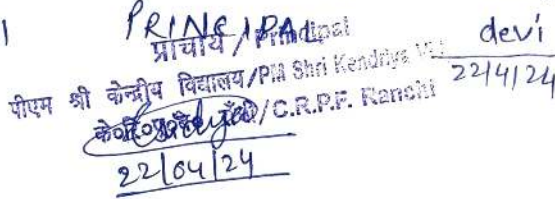 PRINCIPAL devi
प्राचार्य / Principal
पीएम श्री केन्द्रीय विद्यालय/PM Shri Kendriya 22/4/24
/C.R.P.F. Ranchi
22/04/24